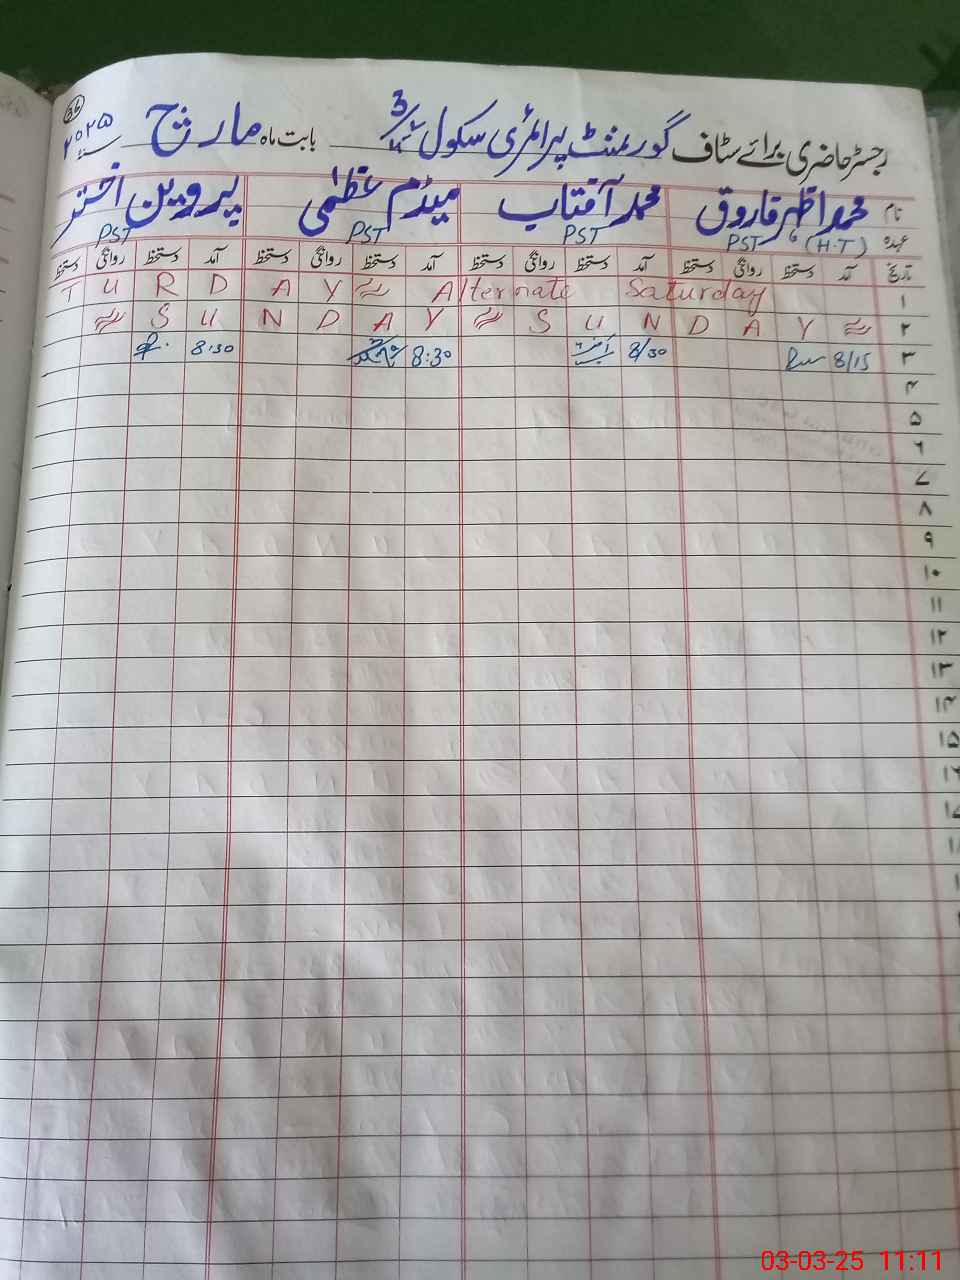 36
رجسٹر حاضری برائے سٹاف گورنمنٹ پرائمری سکول 3/ بابت ماہ مارچ سنہ ۲۰۲۵
نام محمد اظہر فاروق محمد آفتاب میڈم عظمٰی پروین اختر
عہدہ PST (H.T) PST PST PST
تاریخ آمد دستخط روانگی دستخط آمد دستخط روانگی دستخط آمد دستخط روانگی دستخط آمد دستخط روانگی دستخط
۱ T U R D A Y Alternate Saturday
۲ S U N D A Y S U N D A Y
۳ 8/15 8/30 8:30 8:30
۴
۵
۶
۷
۸
۹
۱۰
۱۱
۱۲
۱۳
۱۴
۱۵
03-03-25 11:11